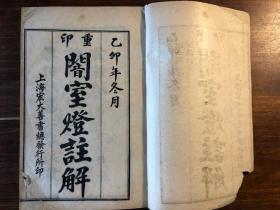 乙卯年冬月
重印
闇室燈註解
上海宏大善書總發行所印